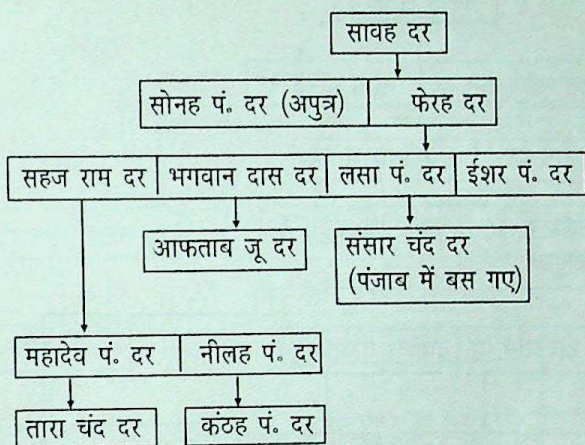 सावह दर
सोनह पं. दर (अपुत्र) फेरह दर
सहज राम दर भगवान दास दर लसा पं. दर ईशर पं. दर
आफताब जू दर संसार चंद दर
(पंजाब में बस गए)
महादेव पं. दर नीलह पं. दर
तारा चंद दर कंठह पं. दर